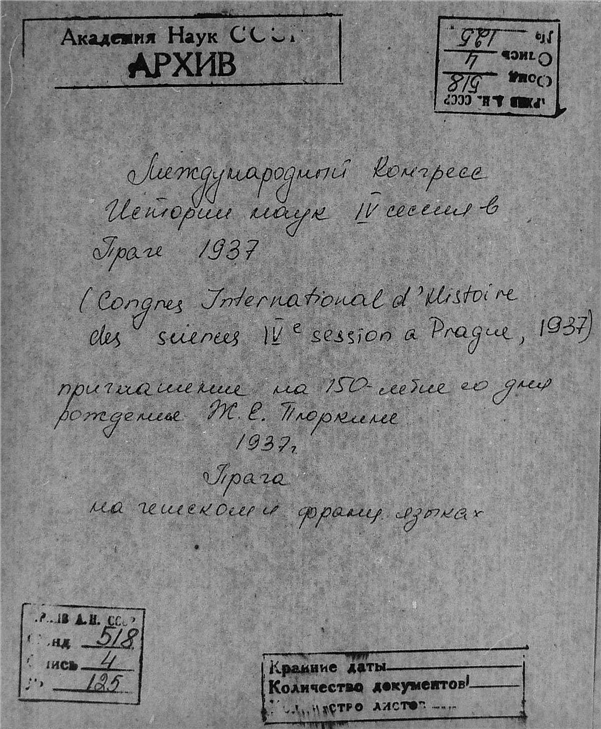 Академия Наук СССР
АРХИВ
АРХИВ А.Н. СССР
Фонд 518
Опись 4
№ 125
Международный Конгресс
Истории наук IV сессия в
Праге 1937
(Congres International d'Histoire
des sciences IVe session a Prague, 1937)
приглашение на 150-летие со дня
рождения Ж. Е. Пюркине
1937г.
Прага
на чешском и франц языках
АРХИВ А.Н. СССР
Фонд 518
Опись 4
№ 125
Крайние даты
Количество документов
Количество листов